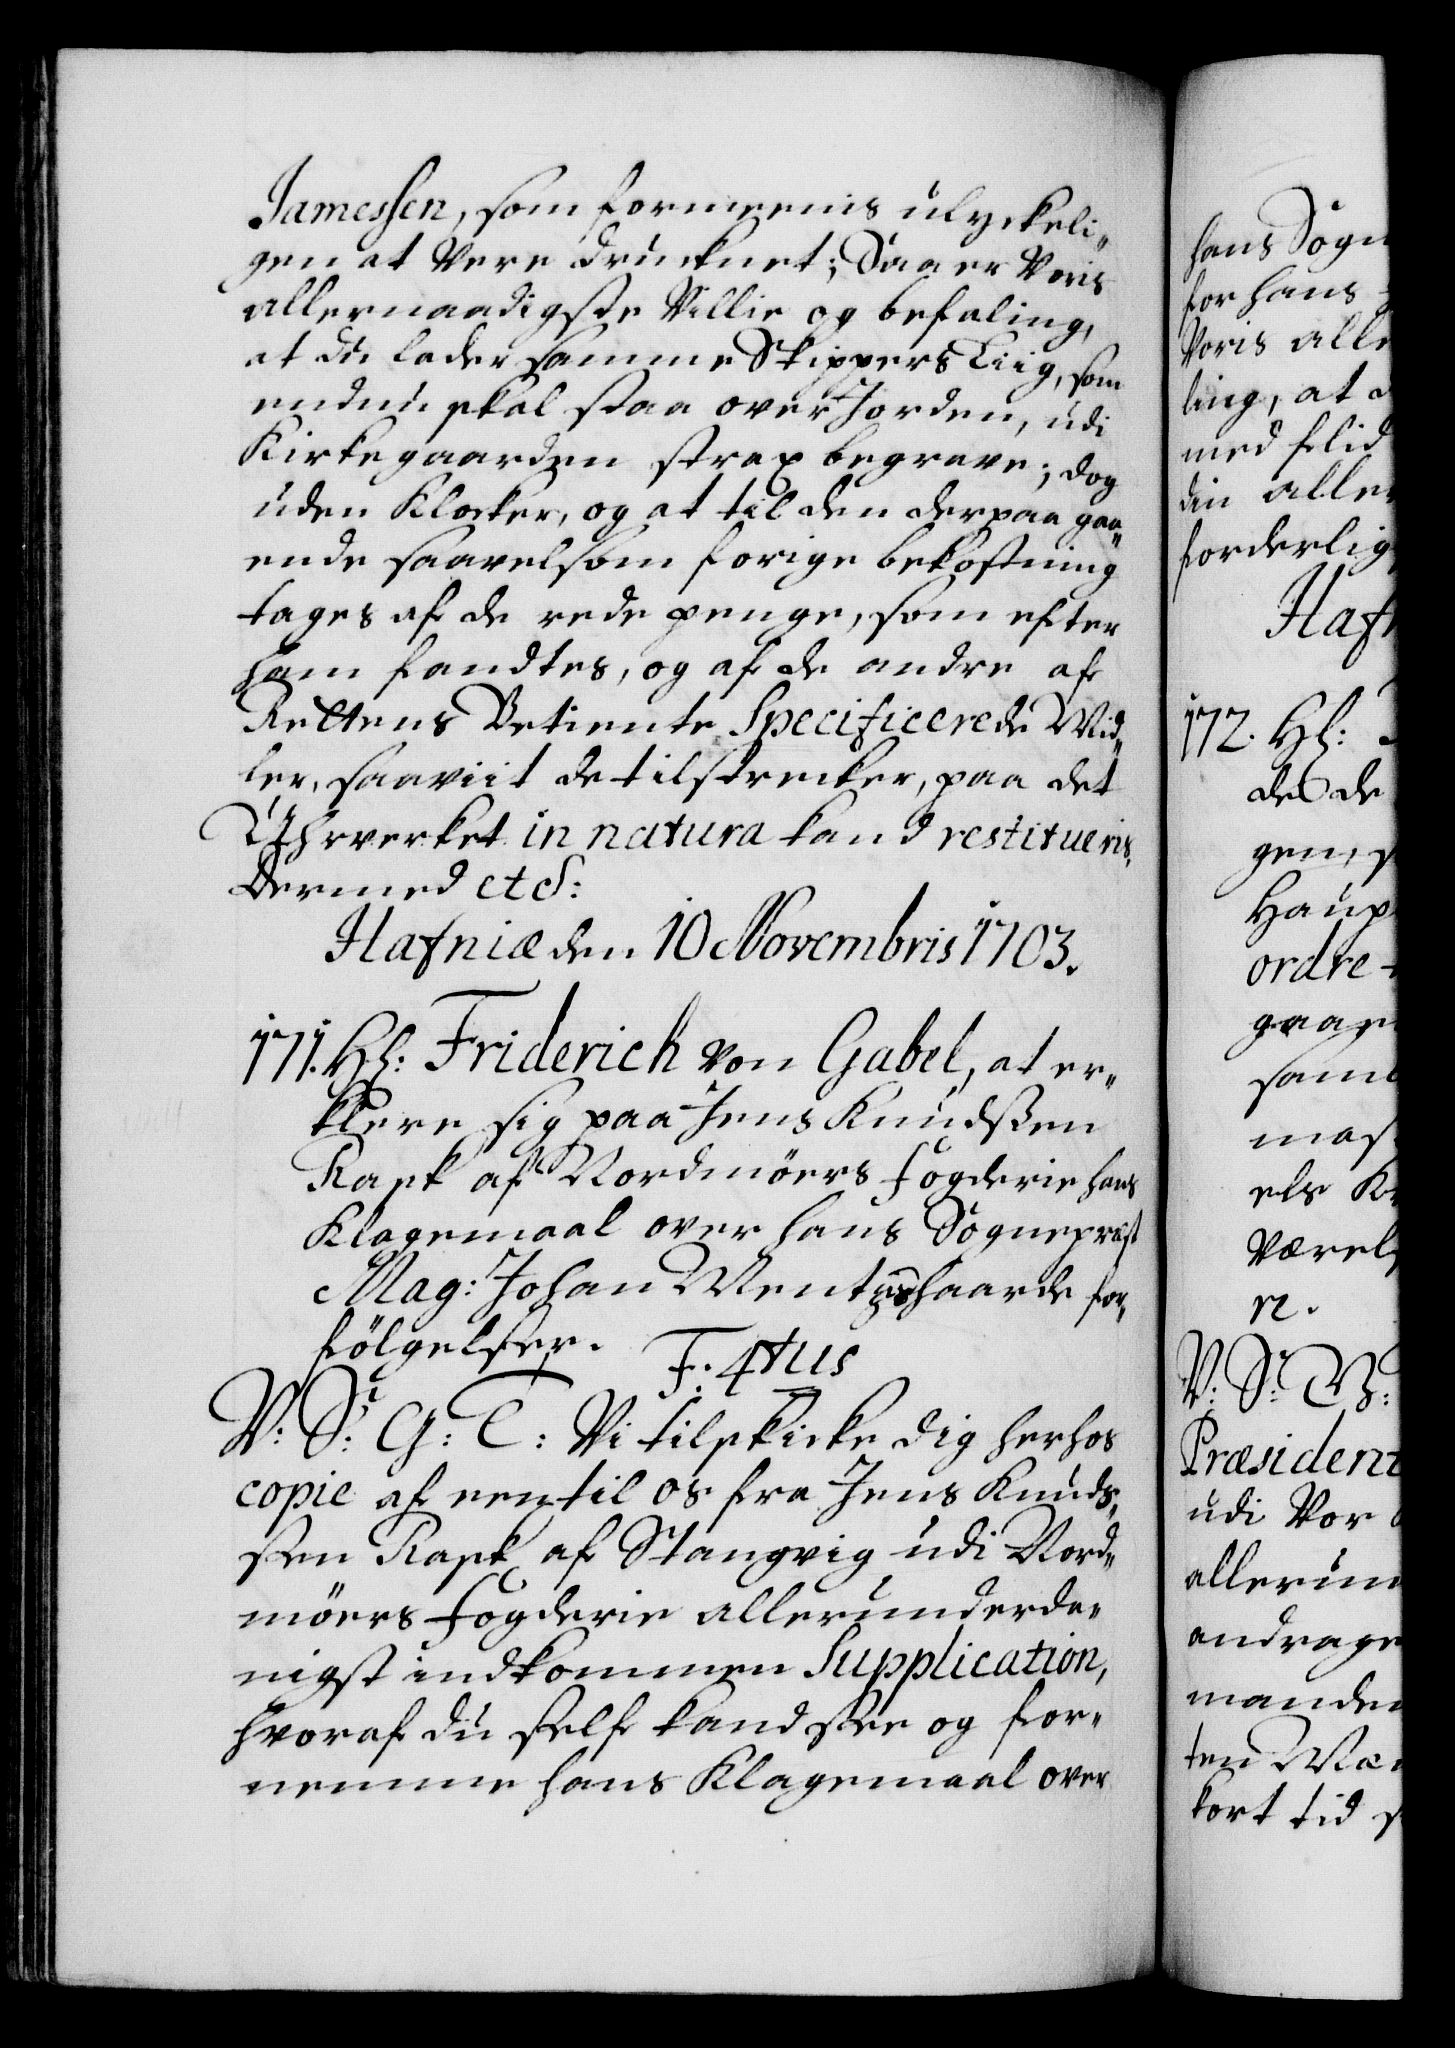 Jamessen, som formeenis ulyckeli„
gen at Vere drucknet; Saa er Voris
allernaadigste Villie og befaling,
at du lader samme Skippers Liig, som
endnu skal staa over Jorden, udi
Kirkegaarden strax begrave; dog
uden Klocker, og at til den derpaa gaa„
ende saavelsom forige bekostning
tages af de rede penge, som efter
ham fandtes, og af de andre af
Rettens Betiente Specificerede Mid„
ler, saaviit de tilstrecker, paa det
Uhrverket in natura kand restitueris,
Dermed etc:
Hafniæ den 10 Novembris 1703.
171. Hh: Friderich von Gabel, at er„
klere sig paa Jens Knudssen
Rask af Nordmöers fogderie hans
Klagemaal over hans Sognepræst
Mag: Johan Mentzes haarde for„
fölgelser. F: 4tus
V: Sr: G: T: Vi tilskicke dig herhos
copie af een til os fra Jens Knuds„
sen Rask af Stangvig udi Nord„
möers fogderie allerunderda„
nigst indkommen Supplication,
hvoraf du self kand see og for„
nemme hans Klagemaal over
hans Sogn
for hans
Voris alle
ling, at d
med flid
din aller
forderlig
Hafn
172. Hh:
des de
gen, s
Haup
ordre
gaar
sam
mas
els K
Værels
n.
V: Sr:
Præsident
udi Vor
allerun
andrage
manden
ten Mæ
kort tid s